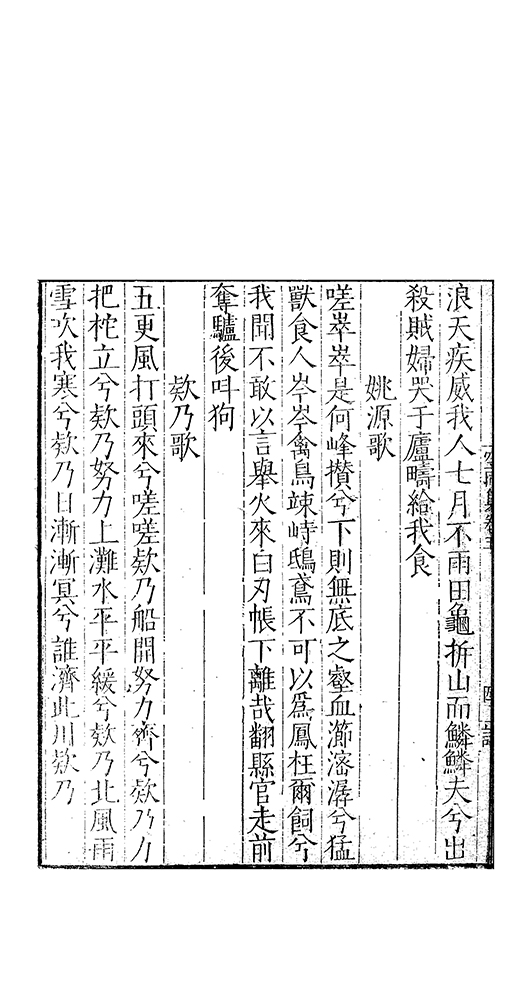 浪天疾威我人七月不雨田龜折山而鱗鱗夫兮出
殺賊婦哭于廬疇給我食
姚源歌
嗟崒崒是何峰攅兮下則無底之壑血㵧濬潺兮猛
獸食人岑岑禽鳥竦峙鴟鳶不可以為鳳枉爾飼兮
我聞不敢以言舉火來白刃帳下離哉翻縣官走前
奪驢後呌狗
欸乃歌
五更風打頭來兮嗟嗟欸乃船開努力齊兮欸乃力
把柁立兮欸乃努力上灘水平平緩兮欸乃北風雨
雪吹我寒兮欸乃日漸漸冥兮誰濟此川欸乃